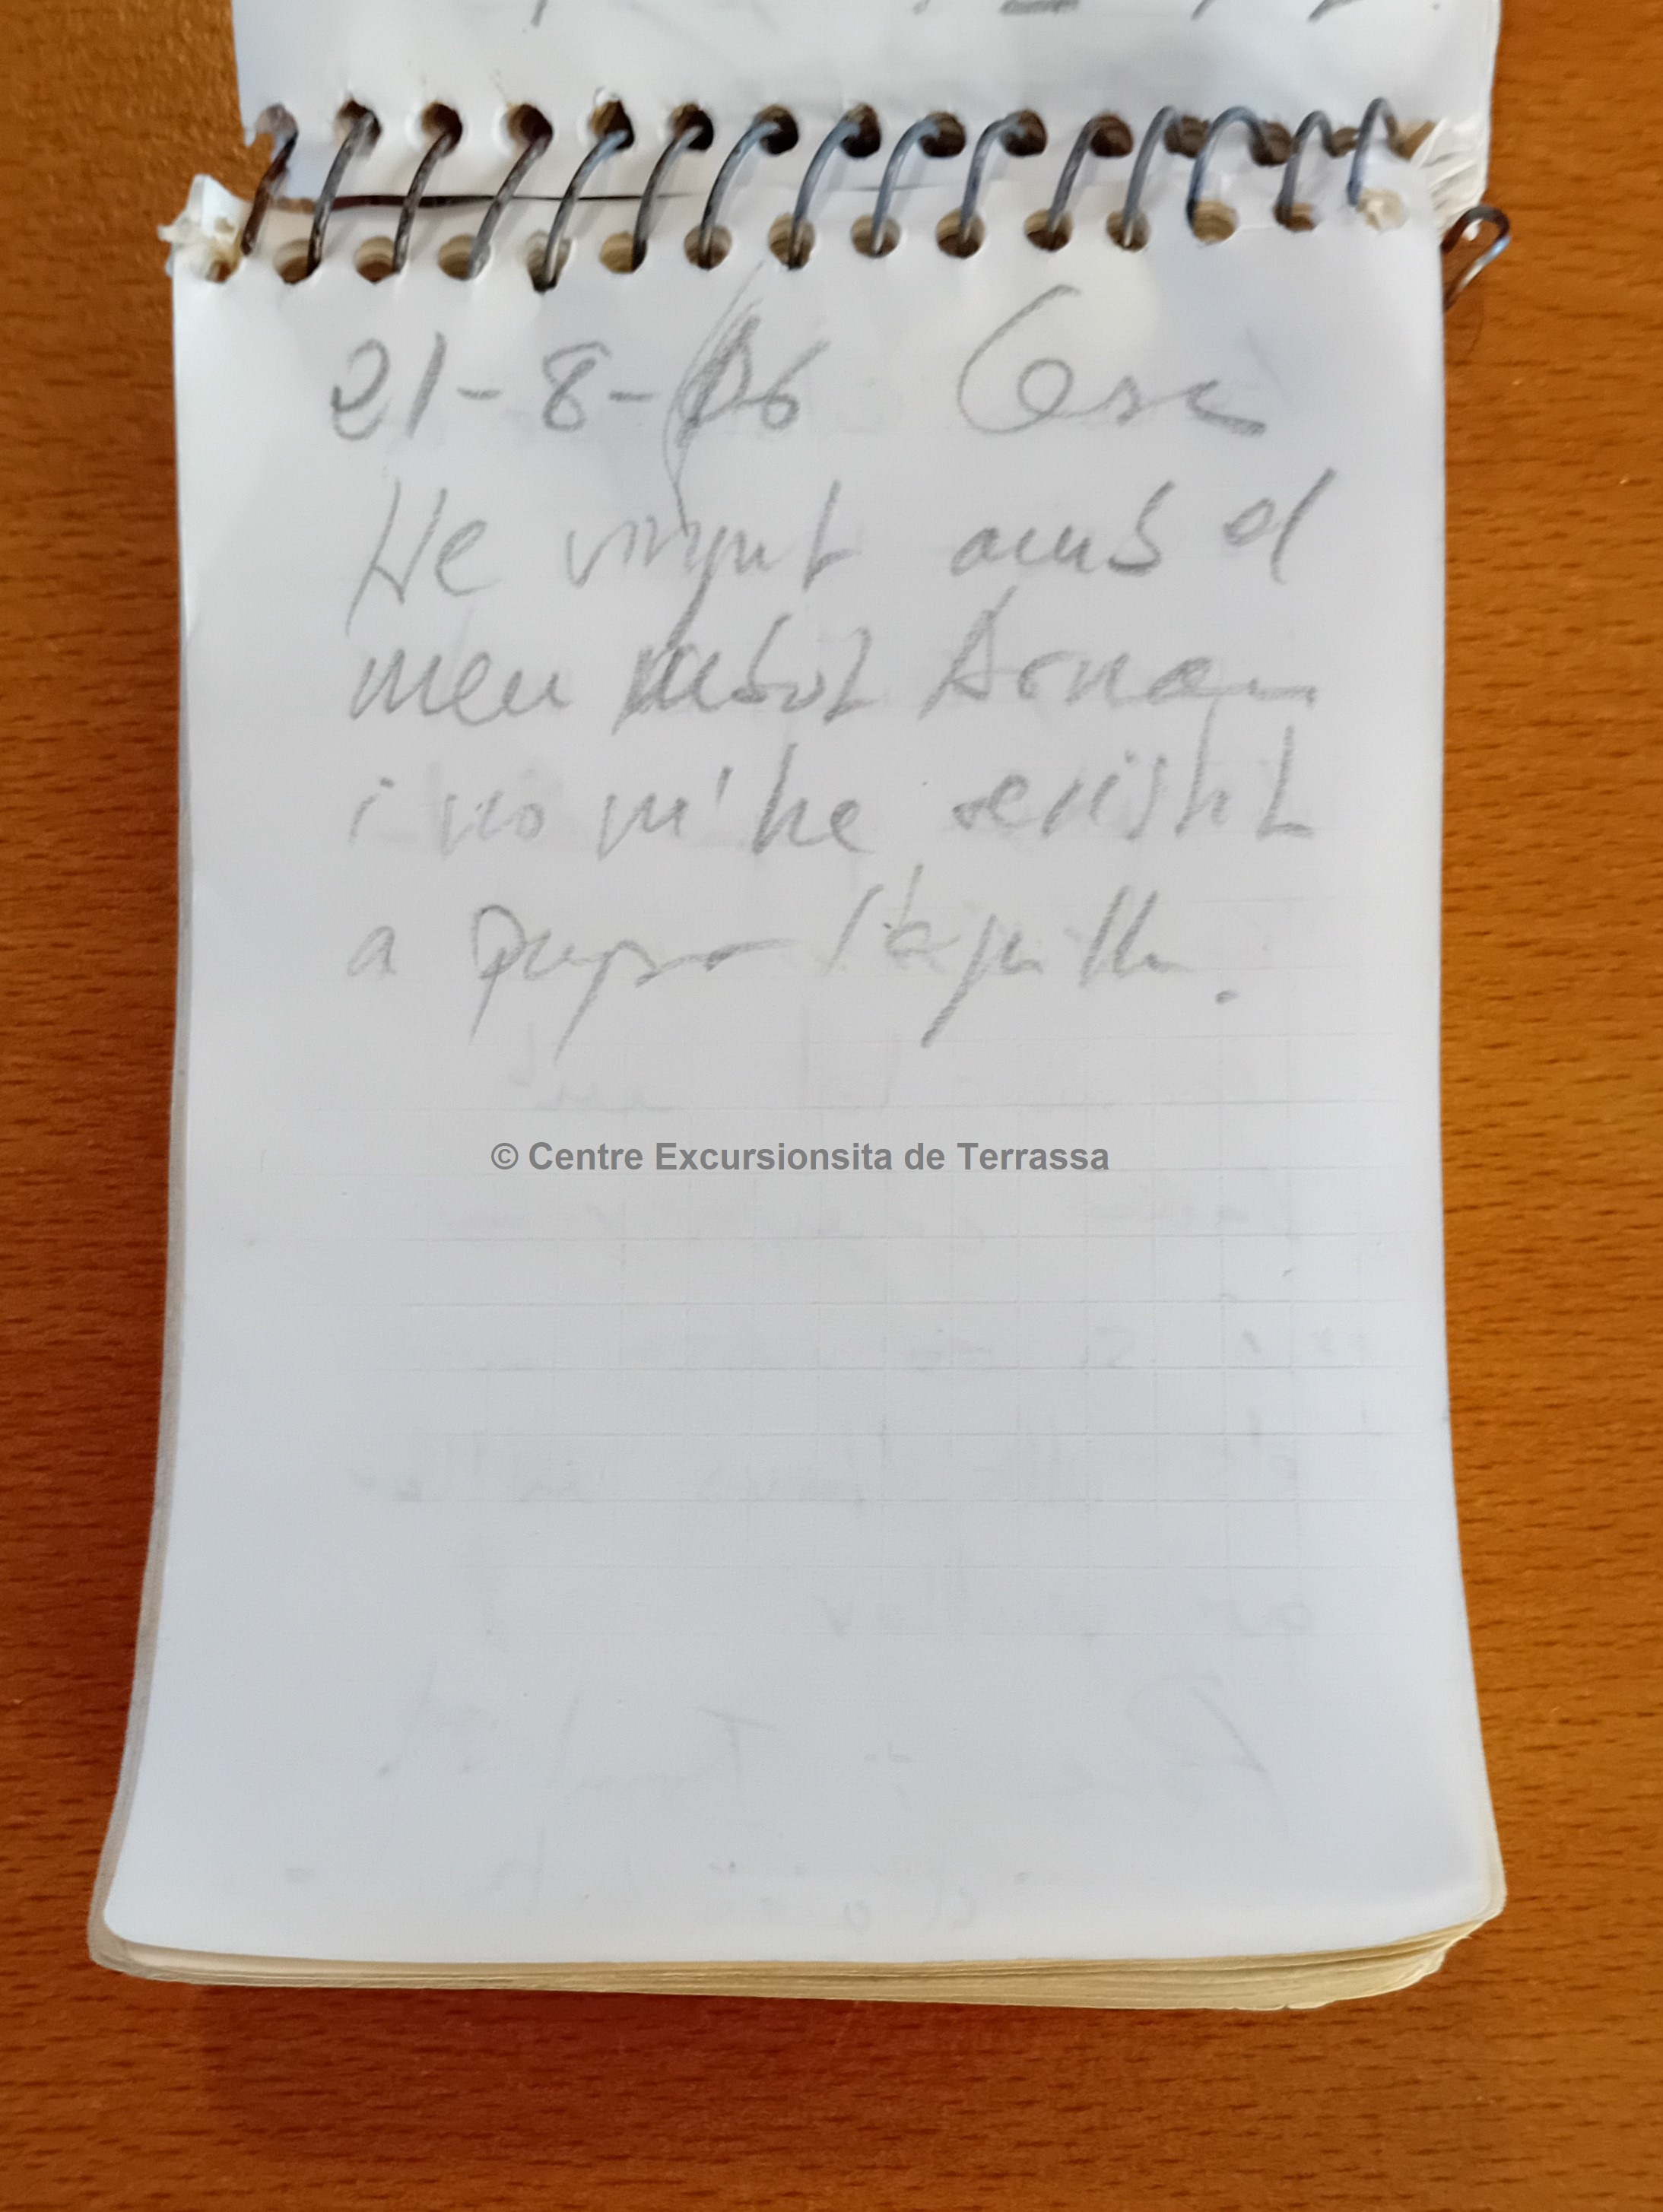 21-8-06 Cesc
He vingut amb el
meu nebot Arnau
i no m'he resistit
a pujar l'agulla.
© Centre Excursionsita de Terrassa